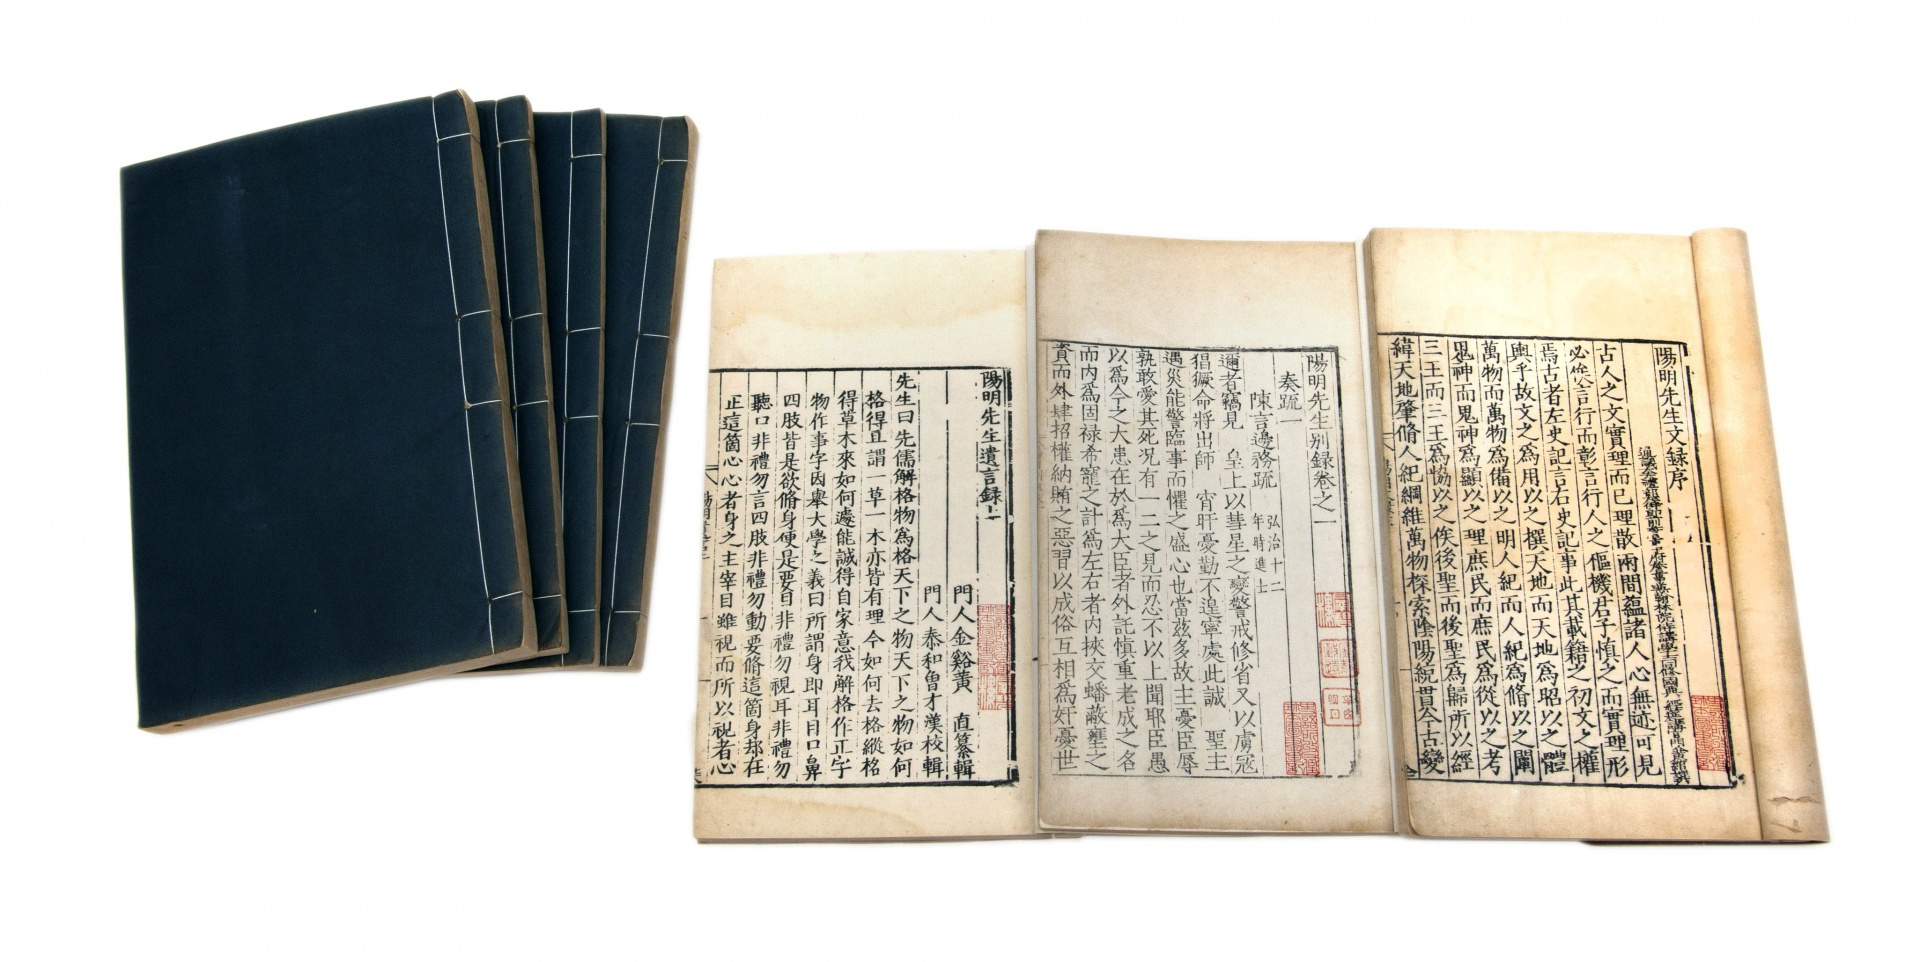 陽明先生文録序
古人之文實理而已理散兩間蘊諸人心無迹可見
必俟言行而彰言行人之樞機君子慎之而實理形
焉古者左史記言右史記事此其載籍之初文之權
輿乎故文之為用以之撰天地而天地為昭以之體
萬物而萬物為備以之明人紀而人紀為脩以之闡
鬼神而鬼神為顯以之理庶民而庶民為從以之考
三王而三王為恊以之俟後聖而後聖為歸所以經
緯天地肇脩人紀綱維萬物探索陰陽統貫今古變
陽明先生别録卷之一
奏疏一
陳言邊務疏 弘治十二年時進士
邇者竊見 皇上以彗星之變警戒修省又以虜冦
猖獗命將出師 宵旰憂勤不遑寧處此誠 聖主
遇災能警臨事而懼之盛心也當茲多故主憂臣辱
孰敢愛其死况有一二之見而忍不以上聞耶臣愚
以為今之大患在於為大臣者外託慎重老成之名
而内為固禄希寵之計為左右者内挾交蟠蔽壅之
資而外肆招權納賄之惡習以成俗互相為奸憂世
陽明先生遺言録上
門人金谿黄 直纂輯
門人泰和曾才漢校輯
先生曰先儒解格物為格天下之物天下之物如何
格得且謂一草一木亦皆有理今如何去格縱格
得草木來如何遽能誠得自家意我解格作正字
物作事字因舉大學之義曰所謂身即耳目口鼻
四肢皆是欲脩身便是要目非禮勿視耳非禮勿
聽口非禮勿言四肢非禮勿動要脩這箇身却在
正這箇心心者身之主宰目雖視而所以視者心